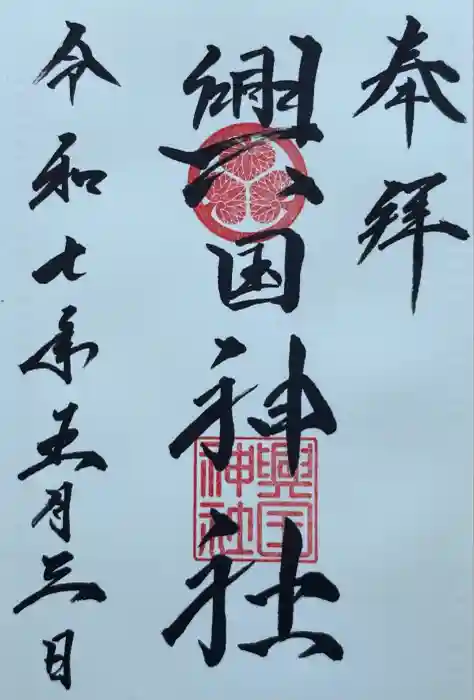 奉拝
興国神社
興国神社
令和七年五月三日